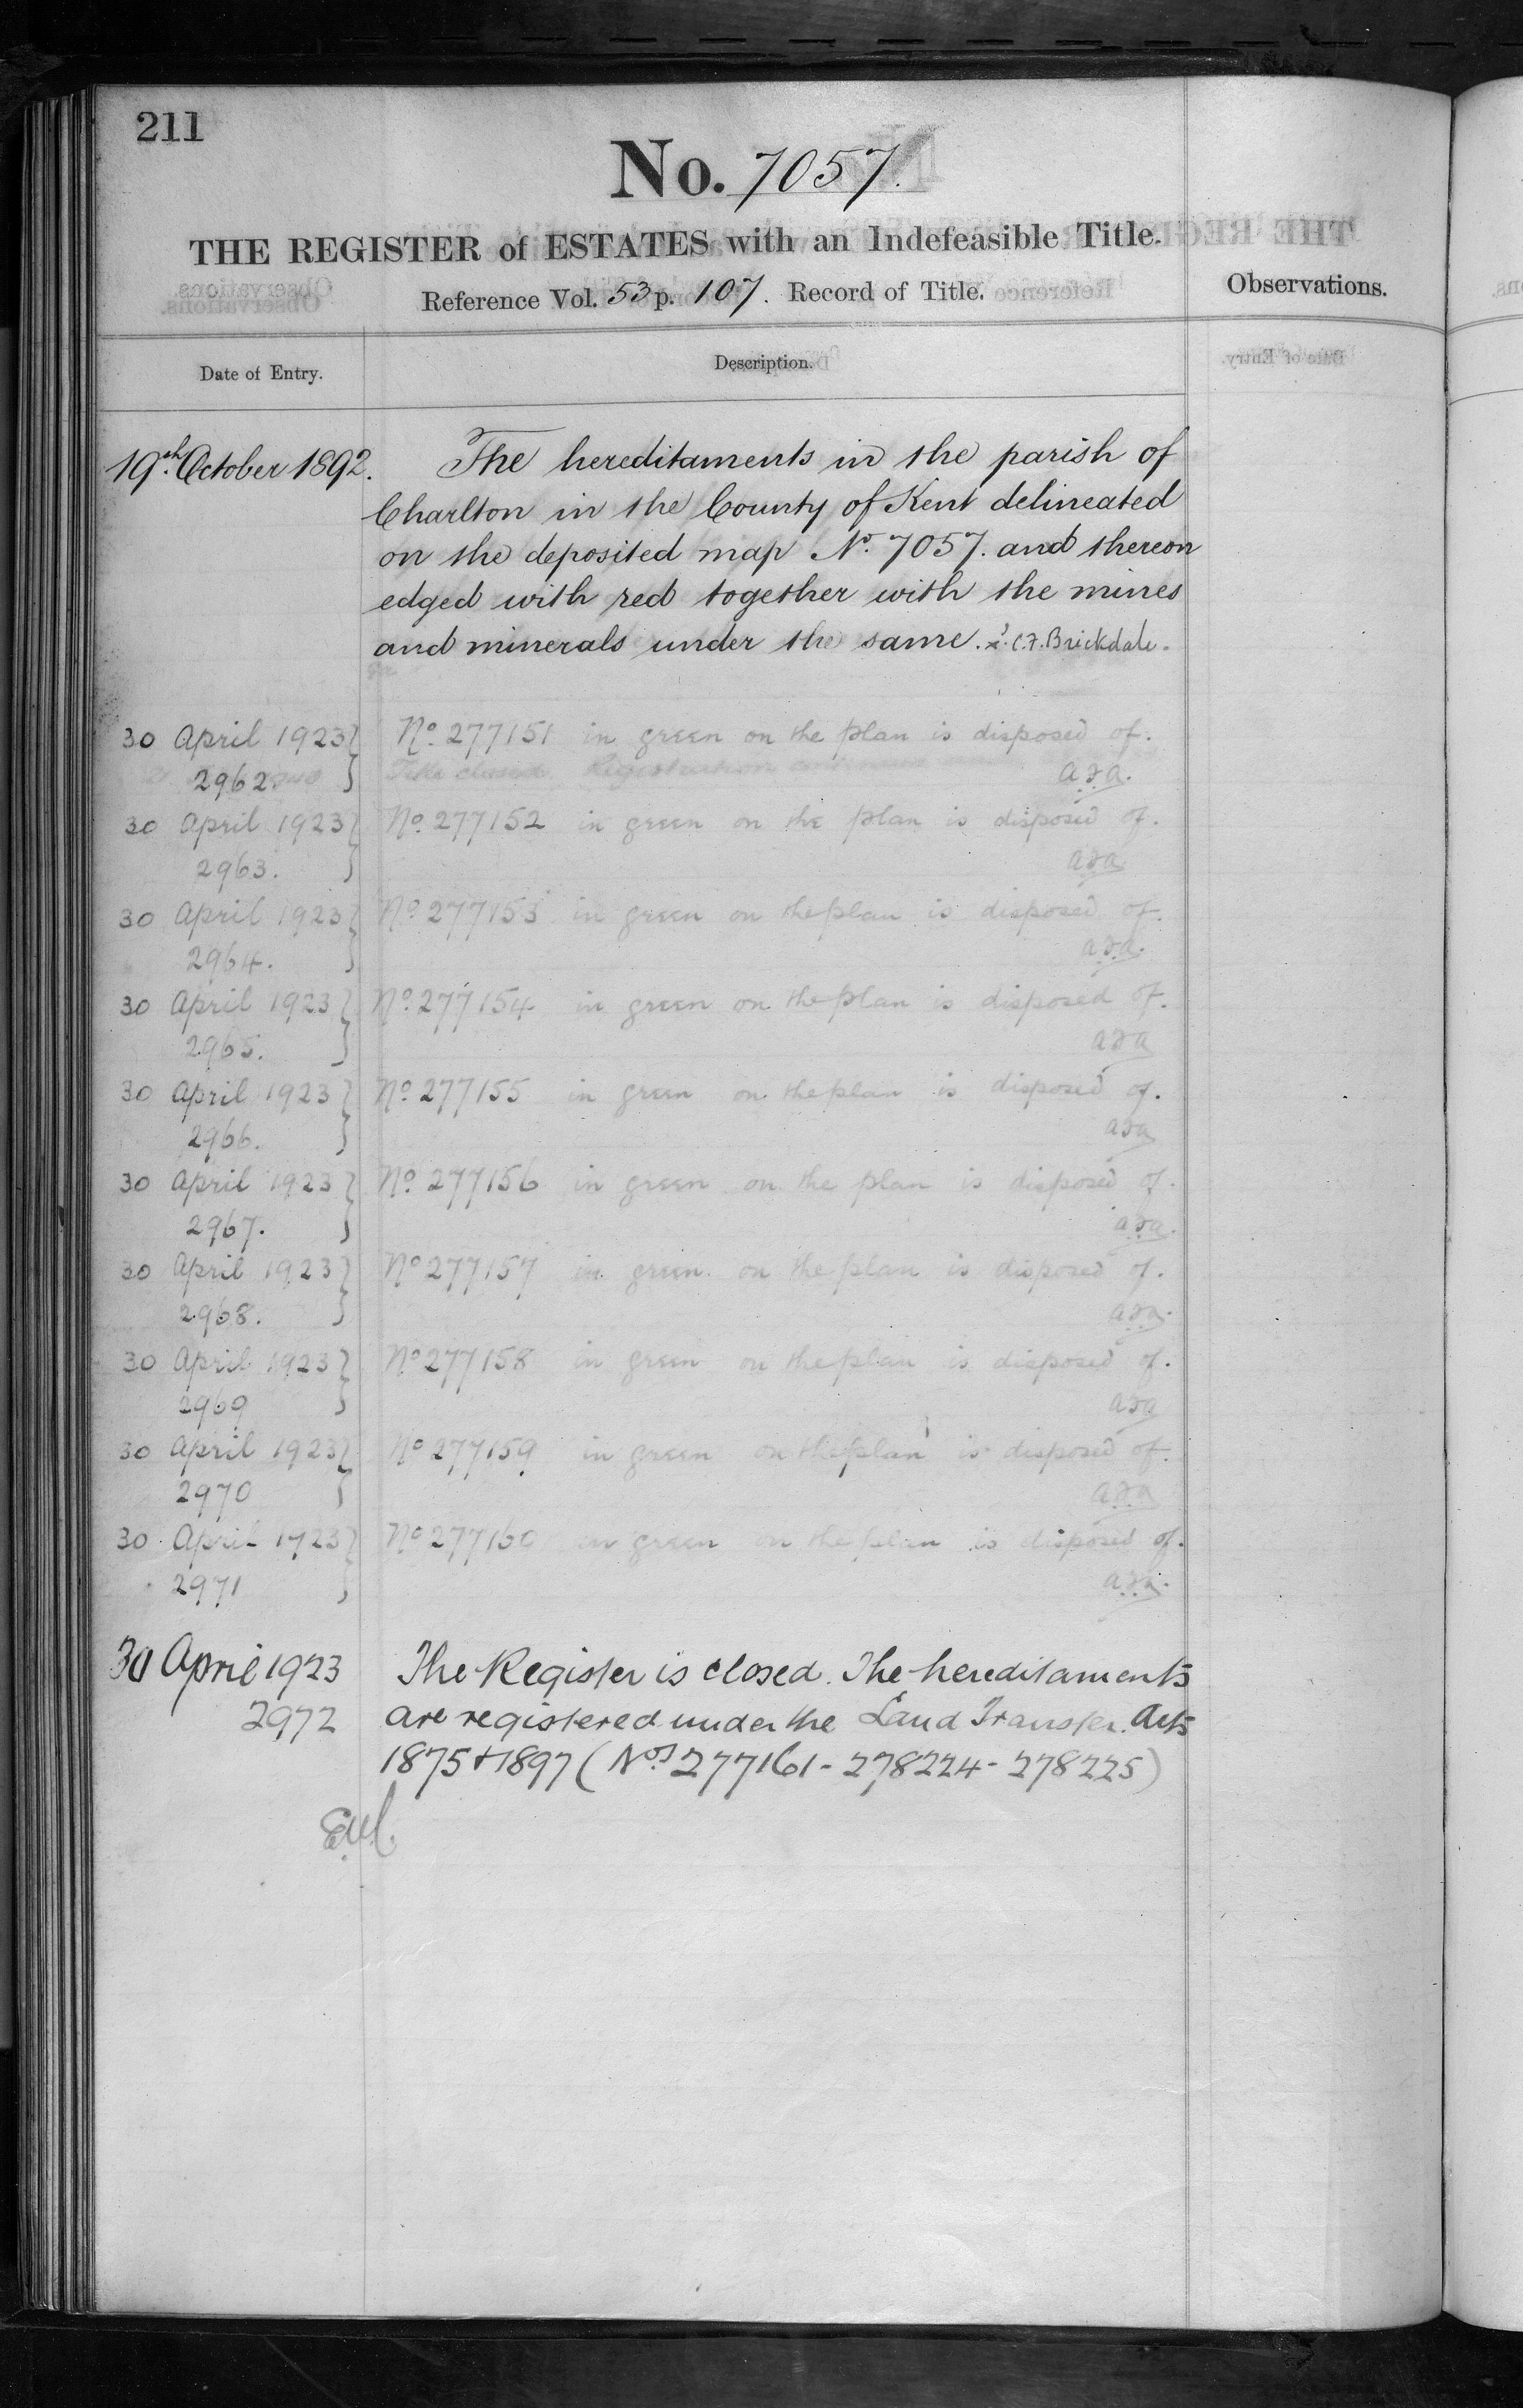 211
No. 7057.
THE REGISTER of ESTATES with an Indefeasible Title.
Reference Vol. 53 p. 107. Record of Title.
Observations.
Date of Entry.
Description.
19th October 1892.
The hereditaments in the parish of
Charlton in the County of Kent delineated
on the deposited map No. 7057. and thereon
edged with red together with the mines
and minerals under the same. C.F. Brickdale.
30 April 1923 No. 277151 in green on the plan is disposed of.
2962 Title closed. Registration
30 April 1923 No. 277152 in green on the plan is disposed of.
2963.
30 April 1923 No. 277153 in green on the plan is disposed of.
2964.
30 April 1923 No. 277154 in green on the plan is disposed of.
2965.
30 April 1923 No. 277155 in green on the plan is disposed of.
2966.
30 April 1923 No. 277156 in green on the plan is disposed of.
2967.
30 April 1923 No. 277157 in green on the plan is disposed of.
2968.
30 April 1923 No. 277158 in green on the plan is disposed of.
2969
30 April 1923 No. 277159 in green on the plan is disposed of.
2970
30 April 1923 No. 277160 in green on the plan is disposed of.
2971
30 April 1923 The Register is closed. The hereditaments
2972 are registered under the Land Transfer Acts
1875 & 1897 (Nos 277161 - 278224 - 278225)